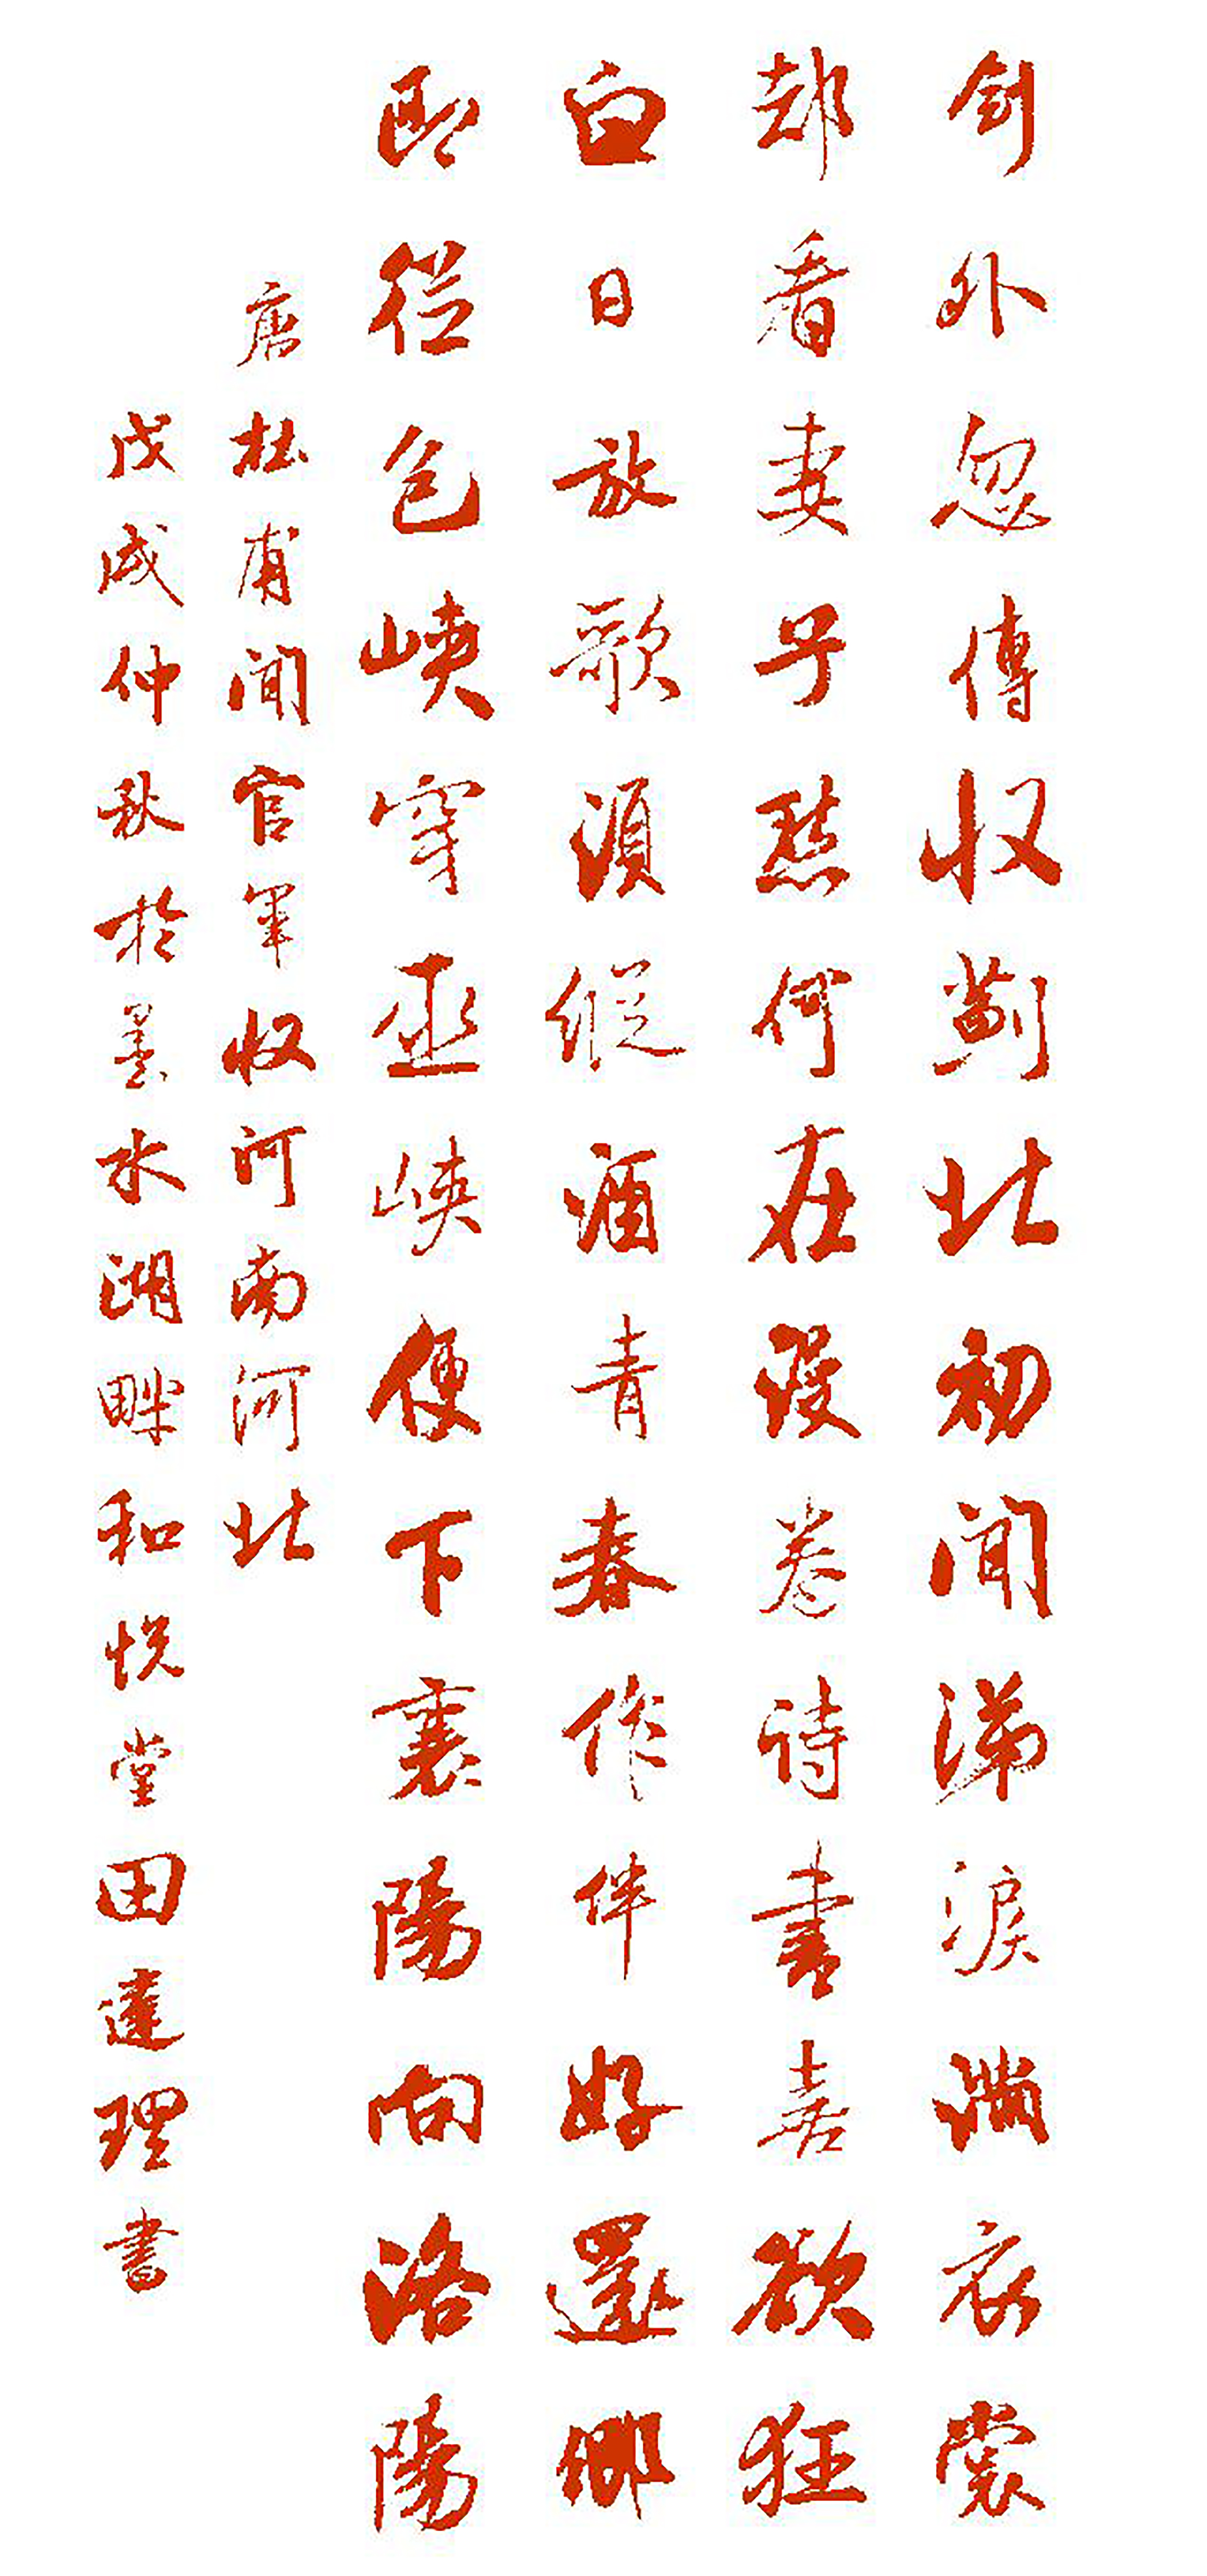 剑外忽傳收薊北初闻涕淚满衣裳
却看妻子愁何在漫卷诗書喜欲狂
白日放歌須縱酒青春作伴好還鄉
即從巴峽穿巫峽便下襄陽向洛陽
唐杜甫闻官軍收河南河北
戊戌仲秋於墨水湖畔和悦堂田達理書